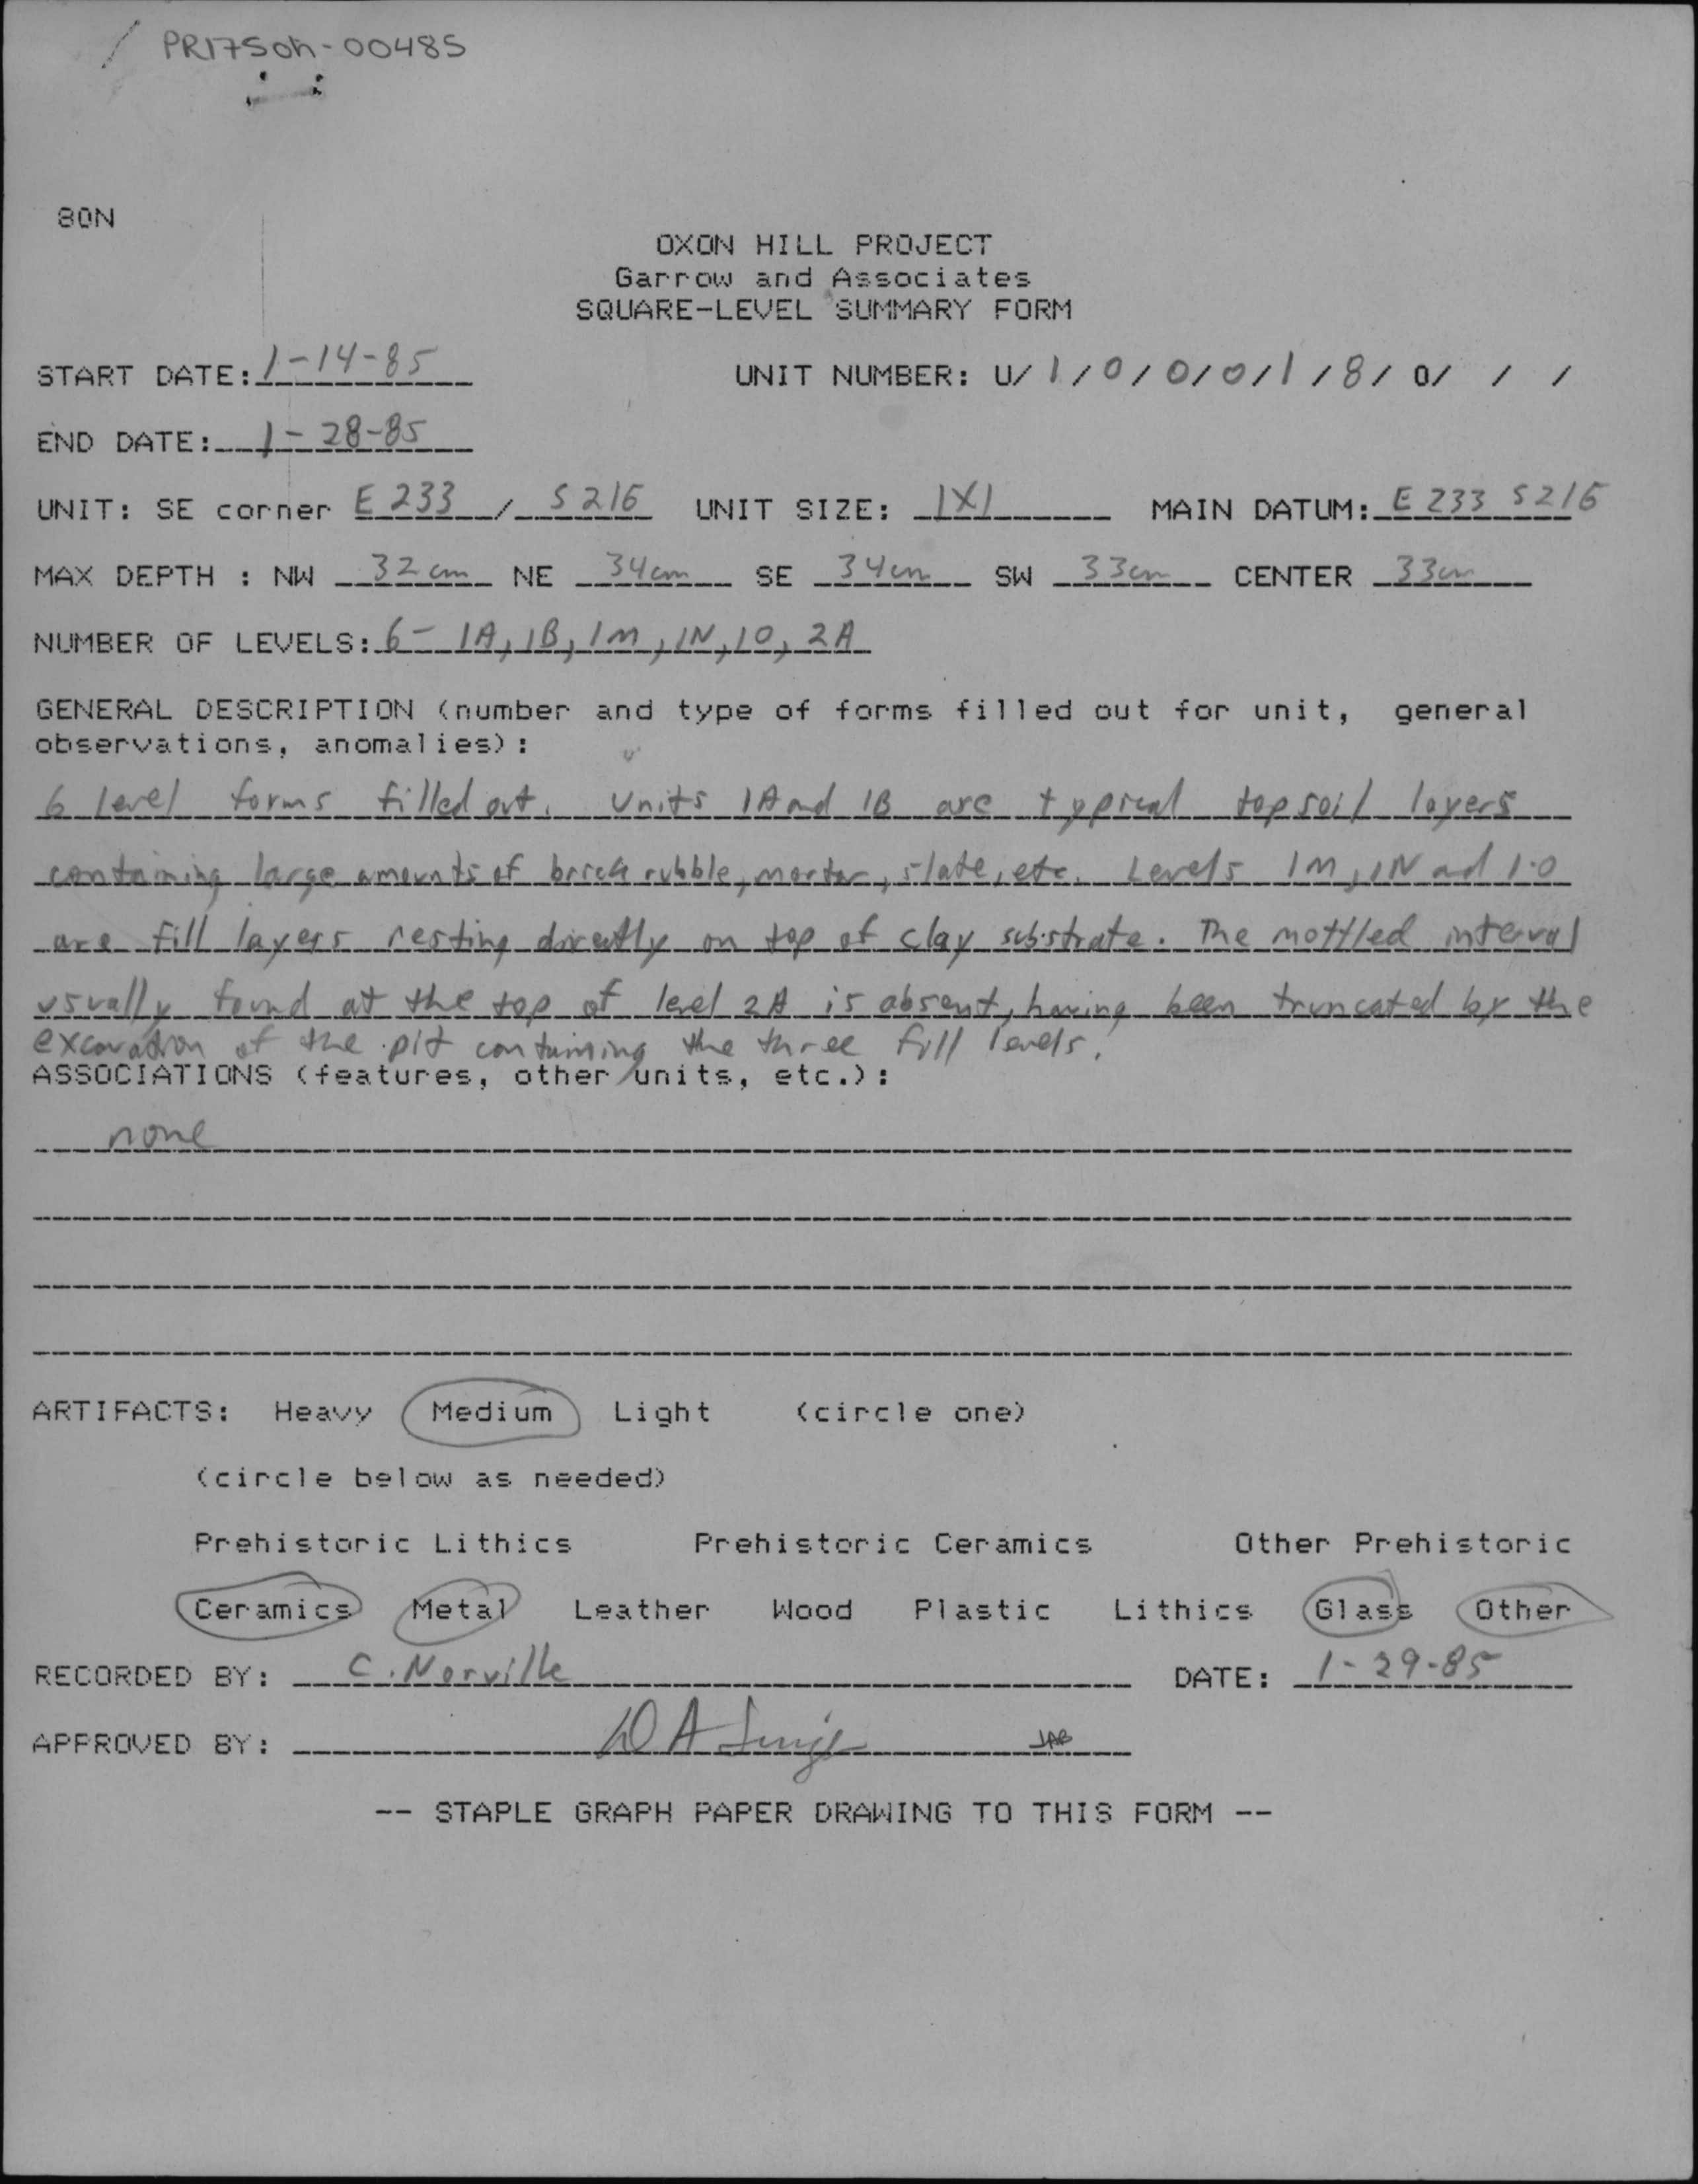 PR175oh-00485
80N
OXON HILL PROJECT
Garrow and Associates
SQUARE-LEVEL SUMMARY FORM
START DATE: 1-14-85 UNIT NUMBER: U/ 1 / 0 / 0 / 0 / 1 / 8 / 0/ / /
END DATE: 1-28-85
UNIT: SE corner E 233 / S 216 UNIT SIZE: 1X1 MAIN DATUM: E 233 S216
MAX DEPTH : NW 32 cm NE 34cm SE 34cm SW 33cm CENTER 33cm
NUMBER OF LEVELS: 6 - 1A, 1B, 1M, 1N, 1O, 2A
GENERAL DESCRIPTION (number and type of forms filled out for unit, general
observations, anomalies):
6 level forms filled out. Units 1A and 1B are typical topsoil layers
containing large amounts of brick rubble, mortar, slate, etc. Levels 1M, 1N and 1-O
are fill layers resting directly on top of clay substrate. The mottled interval
usually found at the top of level 2A is absent, having been truncated by the
excavation of the pit containing the three fill levels.
ASSOCIATIONS (features, other units, etc.):
none
ARTIFACTS: Heavy Medium Light (circle one)
(circle below as needed)
Prehistoric Lithics Prehistoric Ceramics Other Prehistoric
Ceramics Metal Leather Wood Plastic Lithics Glass Other
RECORDED BY: C. Norville DATE: 1-29-85
APPROVED BY:
-- STAPLE GRAPH PAPER DRAWING TO THIS FORM --